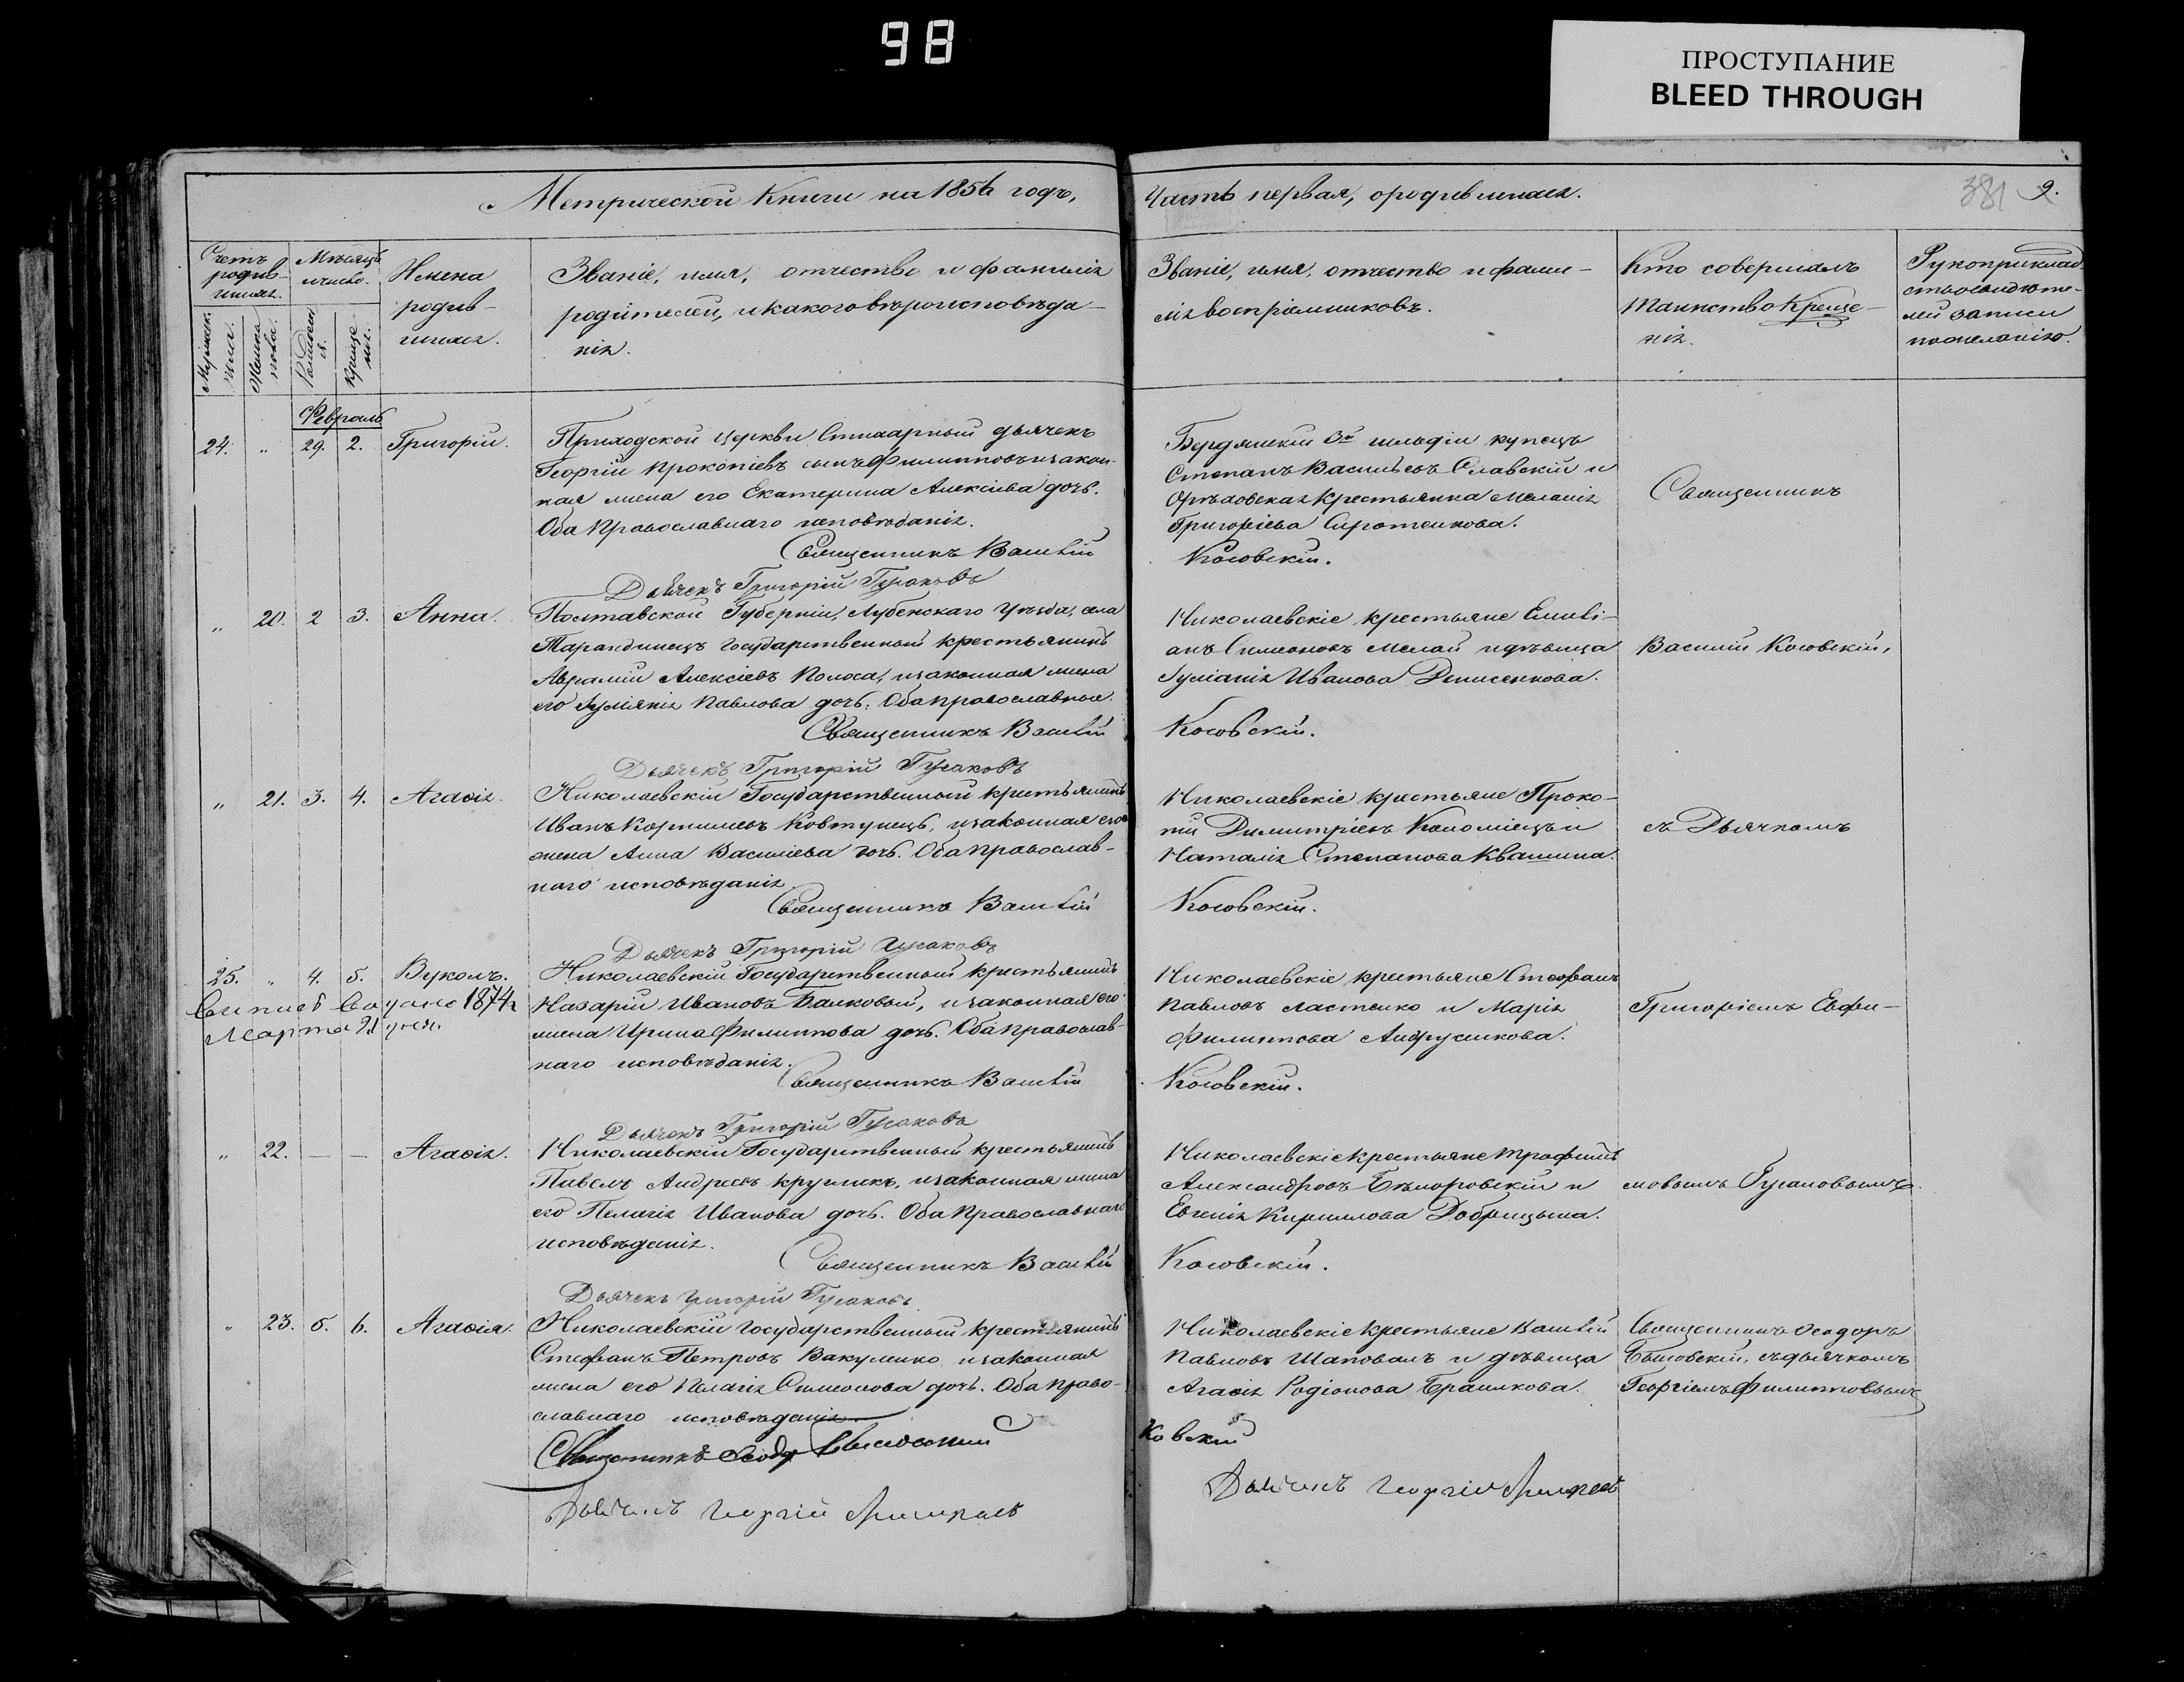 98
ПРОСТУПАНИЕ
BLEED THROUGH
Метрической Книги на 1856 годъ,
Часть первая, о родившихся.
381 9.
Счетъ родив-
шихся.
Мужеск.
пола.
Женска
пола.
Мѣсяцъ
и число.
Рожден
я.
Креще
нія.
Имена
родив-
шихся.
Званіе, имя, отчество и фамилія
родителей, и какого вѣроисповѣда-
нія.
Званіе, имя, отчество и фами-
лія воспріемниковъ.
Кто совершалъ
таинство Креще-
нія.
Рукоприклад-
ство свидѣте-
лей записи
по желанію.
Февраль
24. " 29. 2. Григорій.
Приходской церкви Стихарный дьячекъ
Георгій Прокопіевъ сынъ Филипповъ и закон-
ная жена его Екатерина Алексіева дочь.
Оба Православнаго исповѣданія.
Священникъ Василій
Дьячекъ Григорій Гусаковъ
Бердянскій 3й гильдіи купецъ
Степанъ Васильевъ Славскій и
Орѣховская крестьянка Меланія
Григоріева Сиротенкова.
Косовскій.
Священникъ
" 20. 2 3. Анна.
Полтавской Губерніи, Лубенскаго Уѣзда, села
Тарандинецъ Государственный крестьянинъ
Аврамій Алексіевъ Полоса, и законная жена
его Іуліанія Павлова дочь. Оба православные.
Священникъ Василій
Дьячекъ Григорій Гусаковъ
Николаевскіе крестьяне Емилі-
анъ Симеоновъ Мелай и дѣвица
Іуліанія Иванова Денисенкова.
Косовскій.
Василій Косовскій,
" 21. 3. 4. Агаѳія.
Николаевскій Государственный крестьянинъ
Иванъ Корниліевъ Ковтунецъ, и законная его
жена Анна Василіева дочь. Оба православ-
наго исповѣданія
Священникъ Василій
Дьячекъ Григорій Гусаковъ
Николаевскіе крестьяне Проко-
пій Димитріевъ Коломіецъ и
Наталія Степанова Квашина.
Косовскій.
съ Дьячкомъ
25. " 4. 5. Вуколъ.
1874
Марта 21 дня.
Николаевскій Государственный крестьянинъ
Назарій Ивановъ Балковый, и законная его
жена Ирина Филиппова дочь. Оба православ-
наго исповѣданія.
Священникъ Василій
Дьячекъ Григорій Гусаковъ
Николаевскіе крестьяне Стефанъ
Павловъ Ластенко и Марія
Филиппова Андрусенкова.
Косовскій.
Григоріемъ Евфи-
" 22. — — Агаѳія.
Николаевскій Государственный крестьянинъ
Павелъ Андреевъ Круглякъ, и законная жена
его Пелагія Иванова дочь. Оба Православнаго
исповѣданія.
Священникъ Василій
Дьячекъ Григорій Гусаковъ
Николаевскіе крестьяне Трофимъ
Александровъ Бѣлогоровскій и
Евгенія Кириллова Добрицына.
Косовскій.
мовымъ Гусаковымъ.
" 23. 5. 6. Агаѳія.
Николаевскій Государственный крестьянинъ
Стефанъ Петровъ Вакуленко и законная
жена его Пелагія Симеонова дочь. Оба право-
славнаго исповѣданія
Священникъ Ѳеодоръ
Дьячекъ Георгій
Николаевскіе крестьяне Василій
Павловъ Шаповалъ и дѣвица
Агаѳія Родіонова Брашкова.
ковскій
Дьячекъ Георгій
Священникъ Ѳеодоръ
съ дьячкомъ
Георгіемъ Филипповымъ